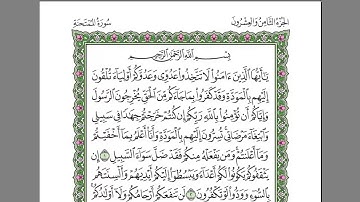 الجزء الثامن والعشرون
سورة الممتحنة
بِسْمِ اللَّهِ الرَّحْمَٰنِ الرَّحِيمِ
يَا أَيُّهَا الَّذِينَ ءَامَنُوا لَا تَتَّخِذُوا عَدُوِّي وَعَدُوَّكُمْ أَوْلِيَاءَ تُلْقُونَ
إِلَيْهِم بِالْمَوَدَّةِ وَقَدْ كَفَرُوا بِمَا جَاءَكُم مِّنَ الْحَقِّ يُخْرِجُونَ الرَّسُولَ
وَإِيَّاكُمْ أَن تُؤْمِنُوا بِاللَّهِ رَبِّكُمْ إِن كُنتُمْ خَرَجْتُمْ جِهَادًا فِي سَبِيلِي
وَابْتِغَاءَ مَرْضَاتِي تُسِرُّونَ إِلَيْهِم بِالْمَوَدَّةِ وَأَنَا أَعْلَمُ بِمَا أَخْفَيْتُمْ
وَمَا أَعْلَنتُمْ وَمَن يَفْعَلْهُ مِنكُمْ فَقَدْ ضَلَّ سَوَاءَ السَّبِيلِ ١ إِن
يَثْقَفُوكُمْ يَكُونُوا لَكُمْ أَعْدَاءً وَيَبْسُطُوا إِلَيْكُمْ أَيْدِيَهُمْ وَأَلْسِنَتَهُم
بِالسُّوءِ وَوَدُّوا لَوْ تَكْفُرُونَ ٢ لَن تَنفَعَكُمْ أَرْحَامُكُمْ وَلَا أَوْلَادُكُمْ